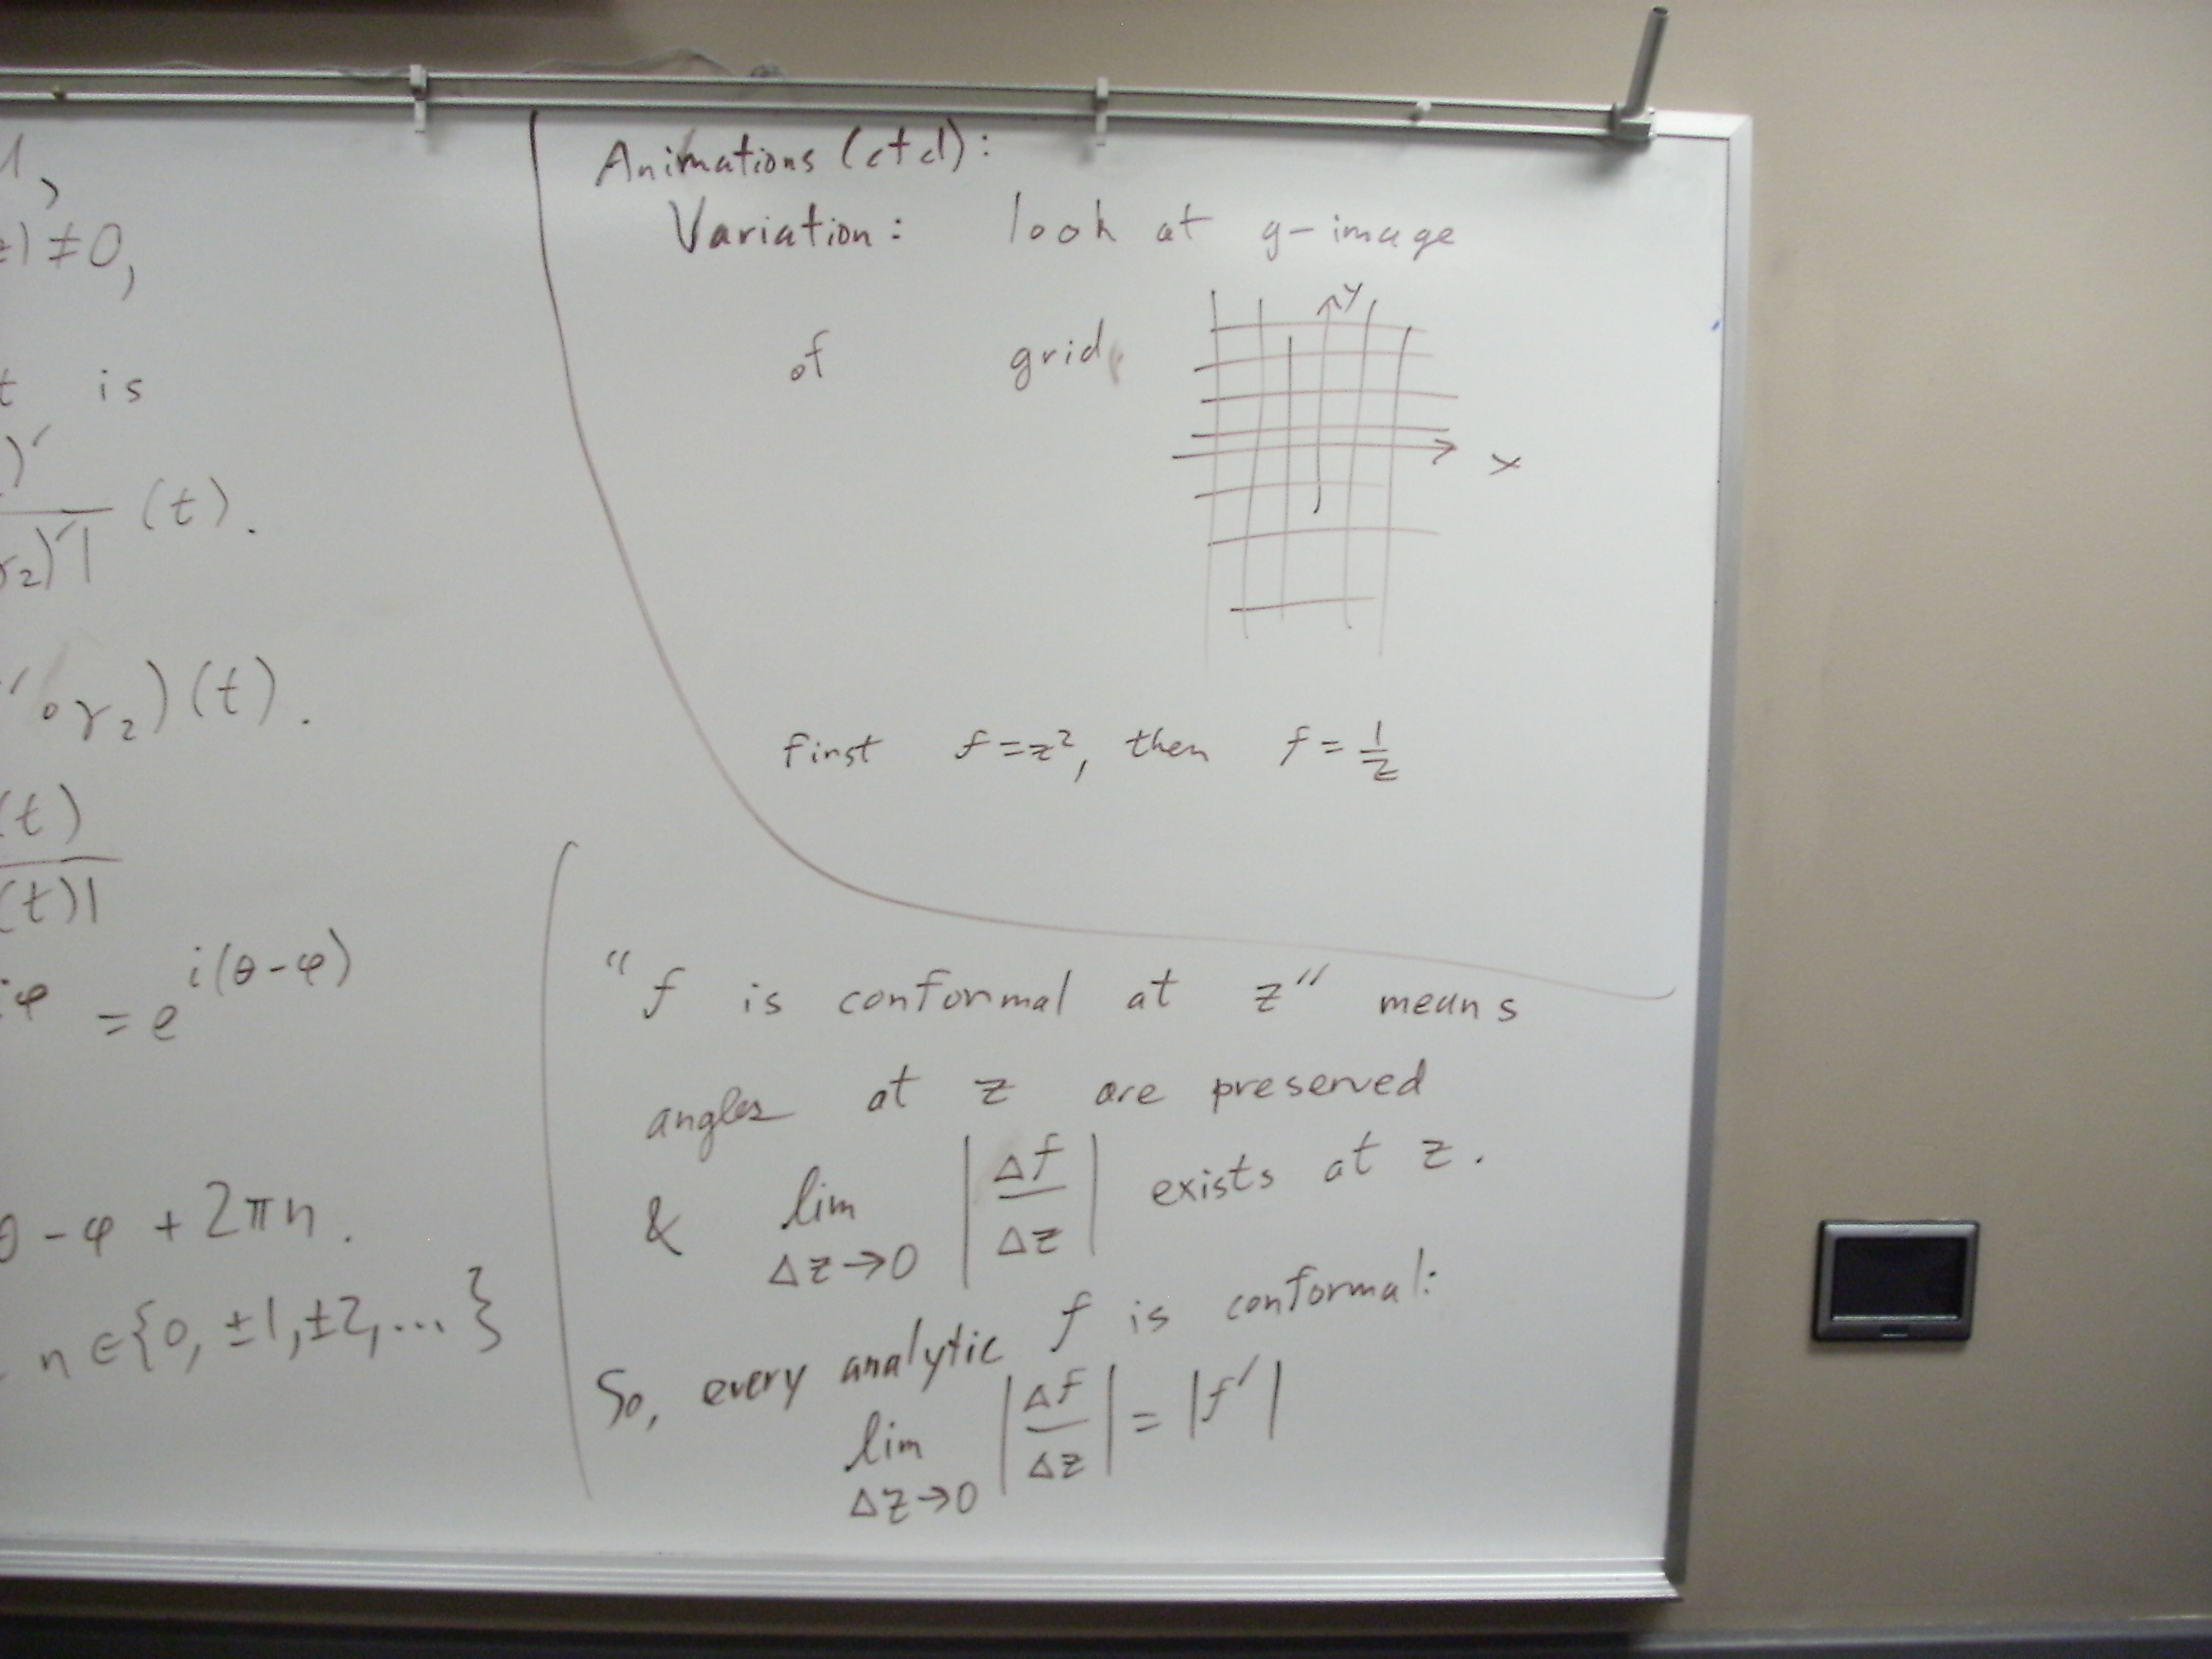 ≠0,
t is
(t).
γ₂)′|
∘γ₂)(t).
(t)
(t)|
iφ = e^{i(θ-φ)}
θ - φ + 2πn.
n ∈ {0, ±1, ±2, ... }
Animations (ctd):
Variation: look at g-image
of grid
y
x
first f = z², then f = 1/z
"f is conformal at z" means
angles at z are preserved
& lim_{Δz→0} |Δf/Δz| exists at z.
So, every analytic f is conformal:
lim_{Δz→0} |Δf/Δz| = |f′|